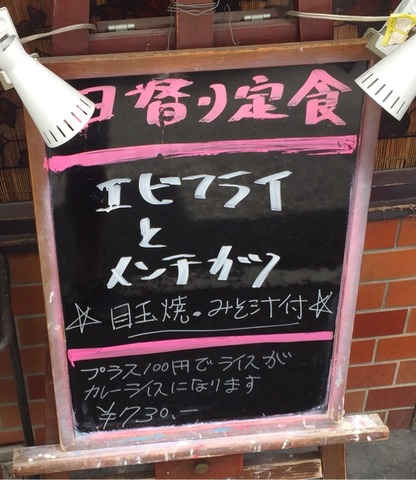 日替り定食
エビフライ
と
メンチカツ
☆目玉焼・みそ汁付☆
プラス100円でライスが
カレーライスになります
¥730.-